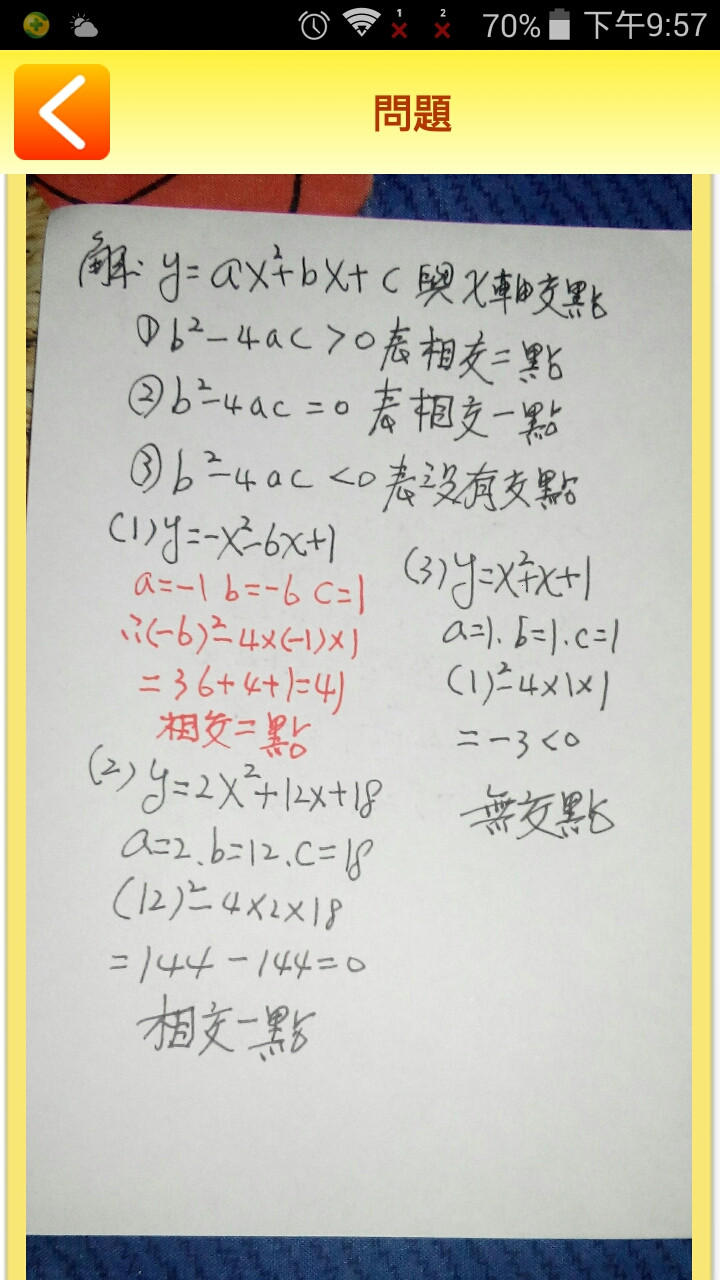 70% 下午9:57
問題
解: y=ax²+bx+c 與x軸交點
① b²-4ac>0表相交二點
② b²-4ac=0 表相交一點
③ b²-4ac<0表沒有交點
(1) y=-x²-6x+1
a=-1 b=-6 c=1
∴(-6)²-4×(-1)×1
=36+4+1=41
相交二點
(2) y=2x²+12x+18
a=2、b=12、c=18
(12)²-4×2×18
=144-144=0
相交一點
(3) y=x²+x+1
a=1、b=1、c=1
(1)²-4×1×1
=-3<0
無交點